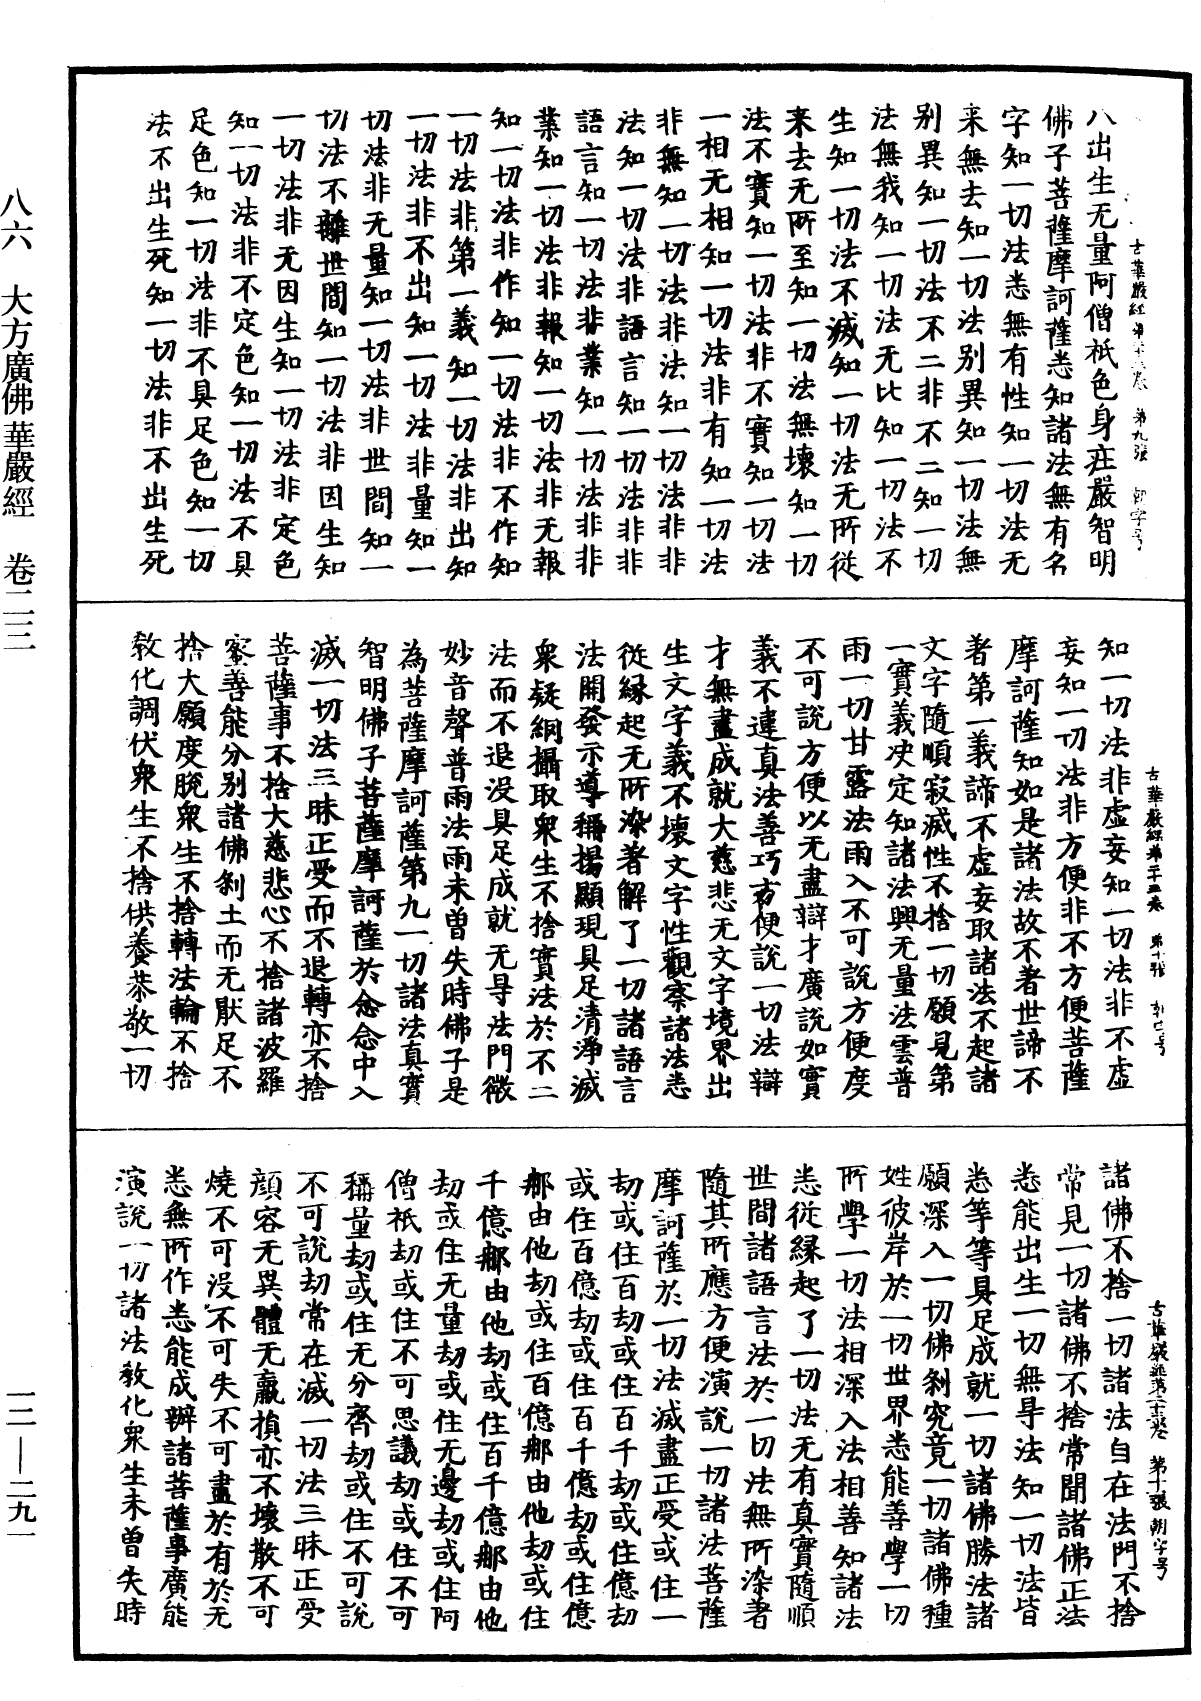 八出生无量阿僧祇色身庄嚴智明
佛子菩薩摩訶薩悉知諸法無有名
字知一切法悉無有性知一切法无
来無去知一切法别異知一切法無
别異知一切法不二非不二知一切
法無我知一切法无比知一切法不
生知一切法不滅知一切法无所從
来去无所至知一切法無壞知一切
法不實知一切法非不實知一切法
一相无相知一切法非有知一切法
非無知一切法非法知一切法非非
法知一切法非語言知一切法非非
語言知一切法非業知一切法非非
業知一切法非報知一切法非无報
知一切法非作知一切法非不作知
一切法非第一義知一切法非出知
一切法非不出知一切法非量知一
切法非无量知一切法非世間知一
切法不離世間知一切法非因生知
一切法非无因生知一切法非定色
知一切法非不定色知一切法不具
足色知一切法非不具足色知一切
法不出生死知一切法非不出生死
古華嚴經 第九張
知一切法非虚妄知一切法非不虚
妄知一切法非方便非不方便菩薩
摩訶薩知如是諸法故不著世諦不
者第一義諦不虚妄取諸法不起諸
文字隨順寂滅性不捨一切願見第
一實義决定知諸法興无量法雲普
雨一切甘露法雨入不可說方便度
不可說方便以无盡辯才廣說如實
義不違真法善巧方便說一切法辯
才無盡成就大慈悲无文字境界出
生文字義不壞文字性觀察諸法悉
従緣起无所染著解了一切諸語言
法開發示導稱揚顯現具足清淨滅
衆疑網攝取衆生不捨實法於不二
法而不退没具足成就无㝵法門微
妙音聲普雨法雨未曽失時佛子是
為菩薩摩訶薩第九一切諸法真實
智明佛子菩薩摩訶薩於念念中入
滅一切法三昧正受而不退轉亦不捨
菩薩事不捨大慈悲心不捨諸波羅
蜜善能分别諸佛剎土而无猒足不
捨大願度脫衆生不捨轉法輪不捨
教化調伏衆生不捨供養恭敬一切
古華嚴經第二十三卷 第十張
諸佛不捨一切諸法自在法門不捨
常見一切諸佛不捨常聞諸佛正法
悉能出生一切無㝵法知一切法皆
悉等等具足成就一切諸佛勝法諸
願深入一切佛剎究竟一切諸佛種
姓彼岸於一切世界悉能善學一切
所學一切法相深入法相善知諸法
悉従緣起了一切法无有真實隨順
世間諸語言法於一切法無所染著
隨其所應方便演說一切諸法菩薩
摩訶薩於一切法滅盡正受或住一
劫或住百劫或住百千劫或住億劫
或住百億劫或住百千億劫或住億
那由他劫或住百億那由他劫或住
千億那由他劫或住百千億那由他
劫或住无量劫或住无邊劫或住阿
僧祇劫或住不可思議劫或住不可
稱量劫或住无分齊劫或住不可說
不可說劫常在滅一切法三昧正受
顔容无異體无羸損亦不壞散不可
燒不可没不可失不可盡於有於无
悉無所作悉能成辦諸菩薩事廣能
演說一切諸法教化衆生未曽失時
古華嚴經第二十三卷 第十一張 朝字号
八六 大方廣佛華嚴經 卷二三
一二—二九一